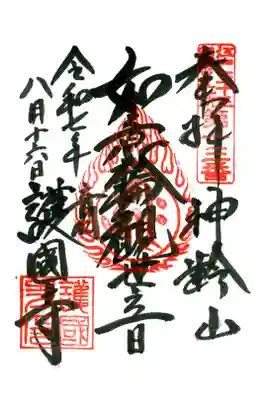 奉拝 神齢山
如意輪観世音
護國寺
令和七年
八月十六日